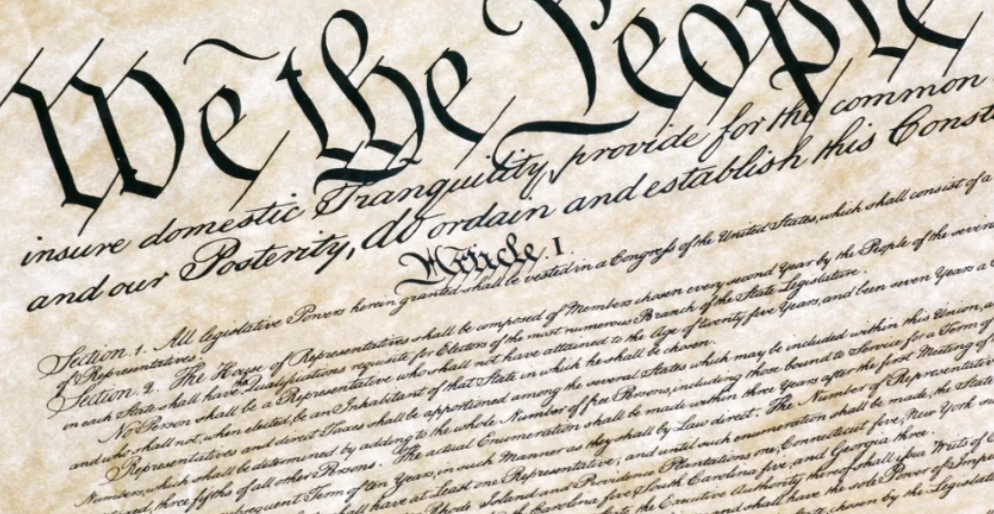 We the People
insure domestic Tranquility, provide for the common
and our Posterity, do ordain and establish this Const
Article. I.
Section. 1. All legislative Powers herein granted shall be vested in a Congress of the United States, which shall consist of a
of Representatives.
Section. 2. The House of Representatives shall be composed of Members chosen every second Year by the People of the several
in each State shall have the Qualifications requisite for Electors of the most numerous Branch of the State Legislature.
No Person shall be a Representative who shall not have attained to the Age of twenty five Years, and been seven Years a
and who shall not, when elected, be an Inhabitant of that State in which he shall be chosen.
Representatives and direct Taxes shall be apportioned among the several States which may be included within this Union,
Numbers, which shall be determined by adding to the whole Number of free Persons, including those bound to Service for a Term of
three fifths of all other Persons. The actual Enumeration shall be made within three Years after the first Meeting of
Term of ten Years, in such Manner as they shall by Law direct. The Number of Representatives
shall have at Least one Representative; and until such enumeration shall be made, the State
Rhode Island and Providence Plantations one, Connecticut five, New York
Carolina five, South Carolina five, and Georgia three.
the Executive Authority thereof shall issue Writs of
and shall have the sole Power of
chosen by the